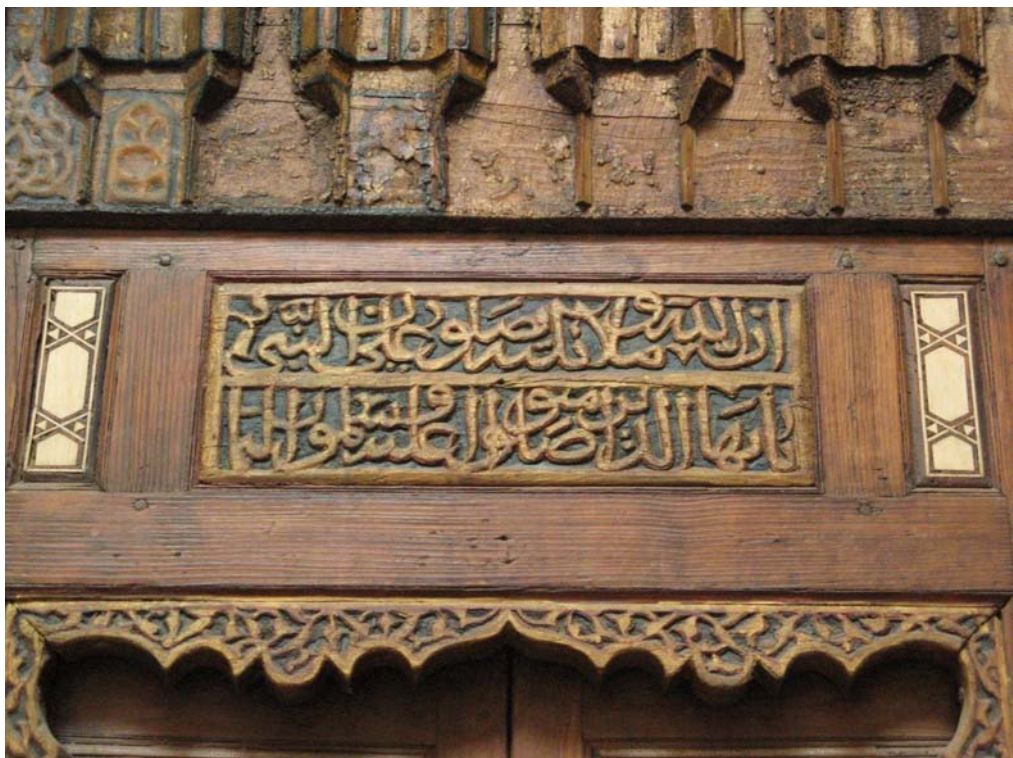 ان الله وملائكته يصلون على النبي
يا يها الذين امنوا صلوا عليه وسلموا